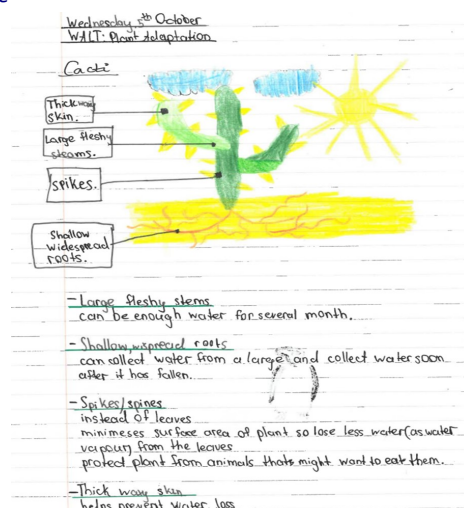 Wednesday 5th October
WALT: Plant Adaptation
Cacti
Thick waxy
skin.
Large fleshy
steams.
spikes.
Shallow
widespread
roots.
- Large fleshy stems
can be enough water for several month.
- Shallow, wispread roots
can sollect water from a large and collect water soon
after it has fallen.
- Spikes/spines
instead of leaves
minimeses surface area of plant so lose less water (as water
vapour) from the leaves
protect plant from animals thats might want to eat them.
- Thick waxy skin
helps prevent water loss